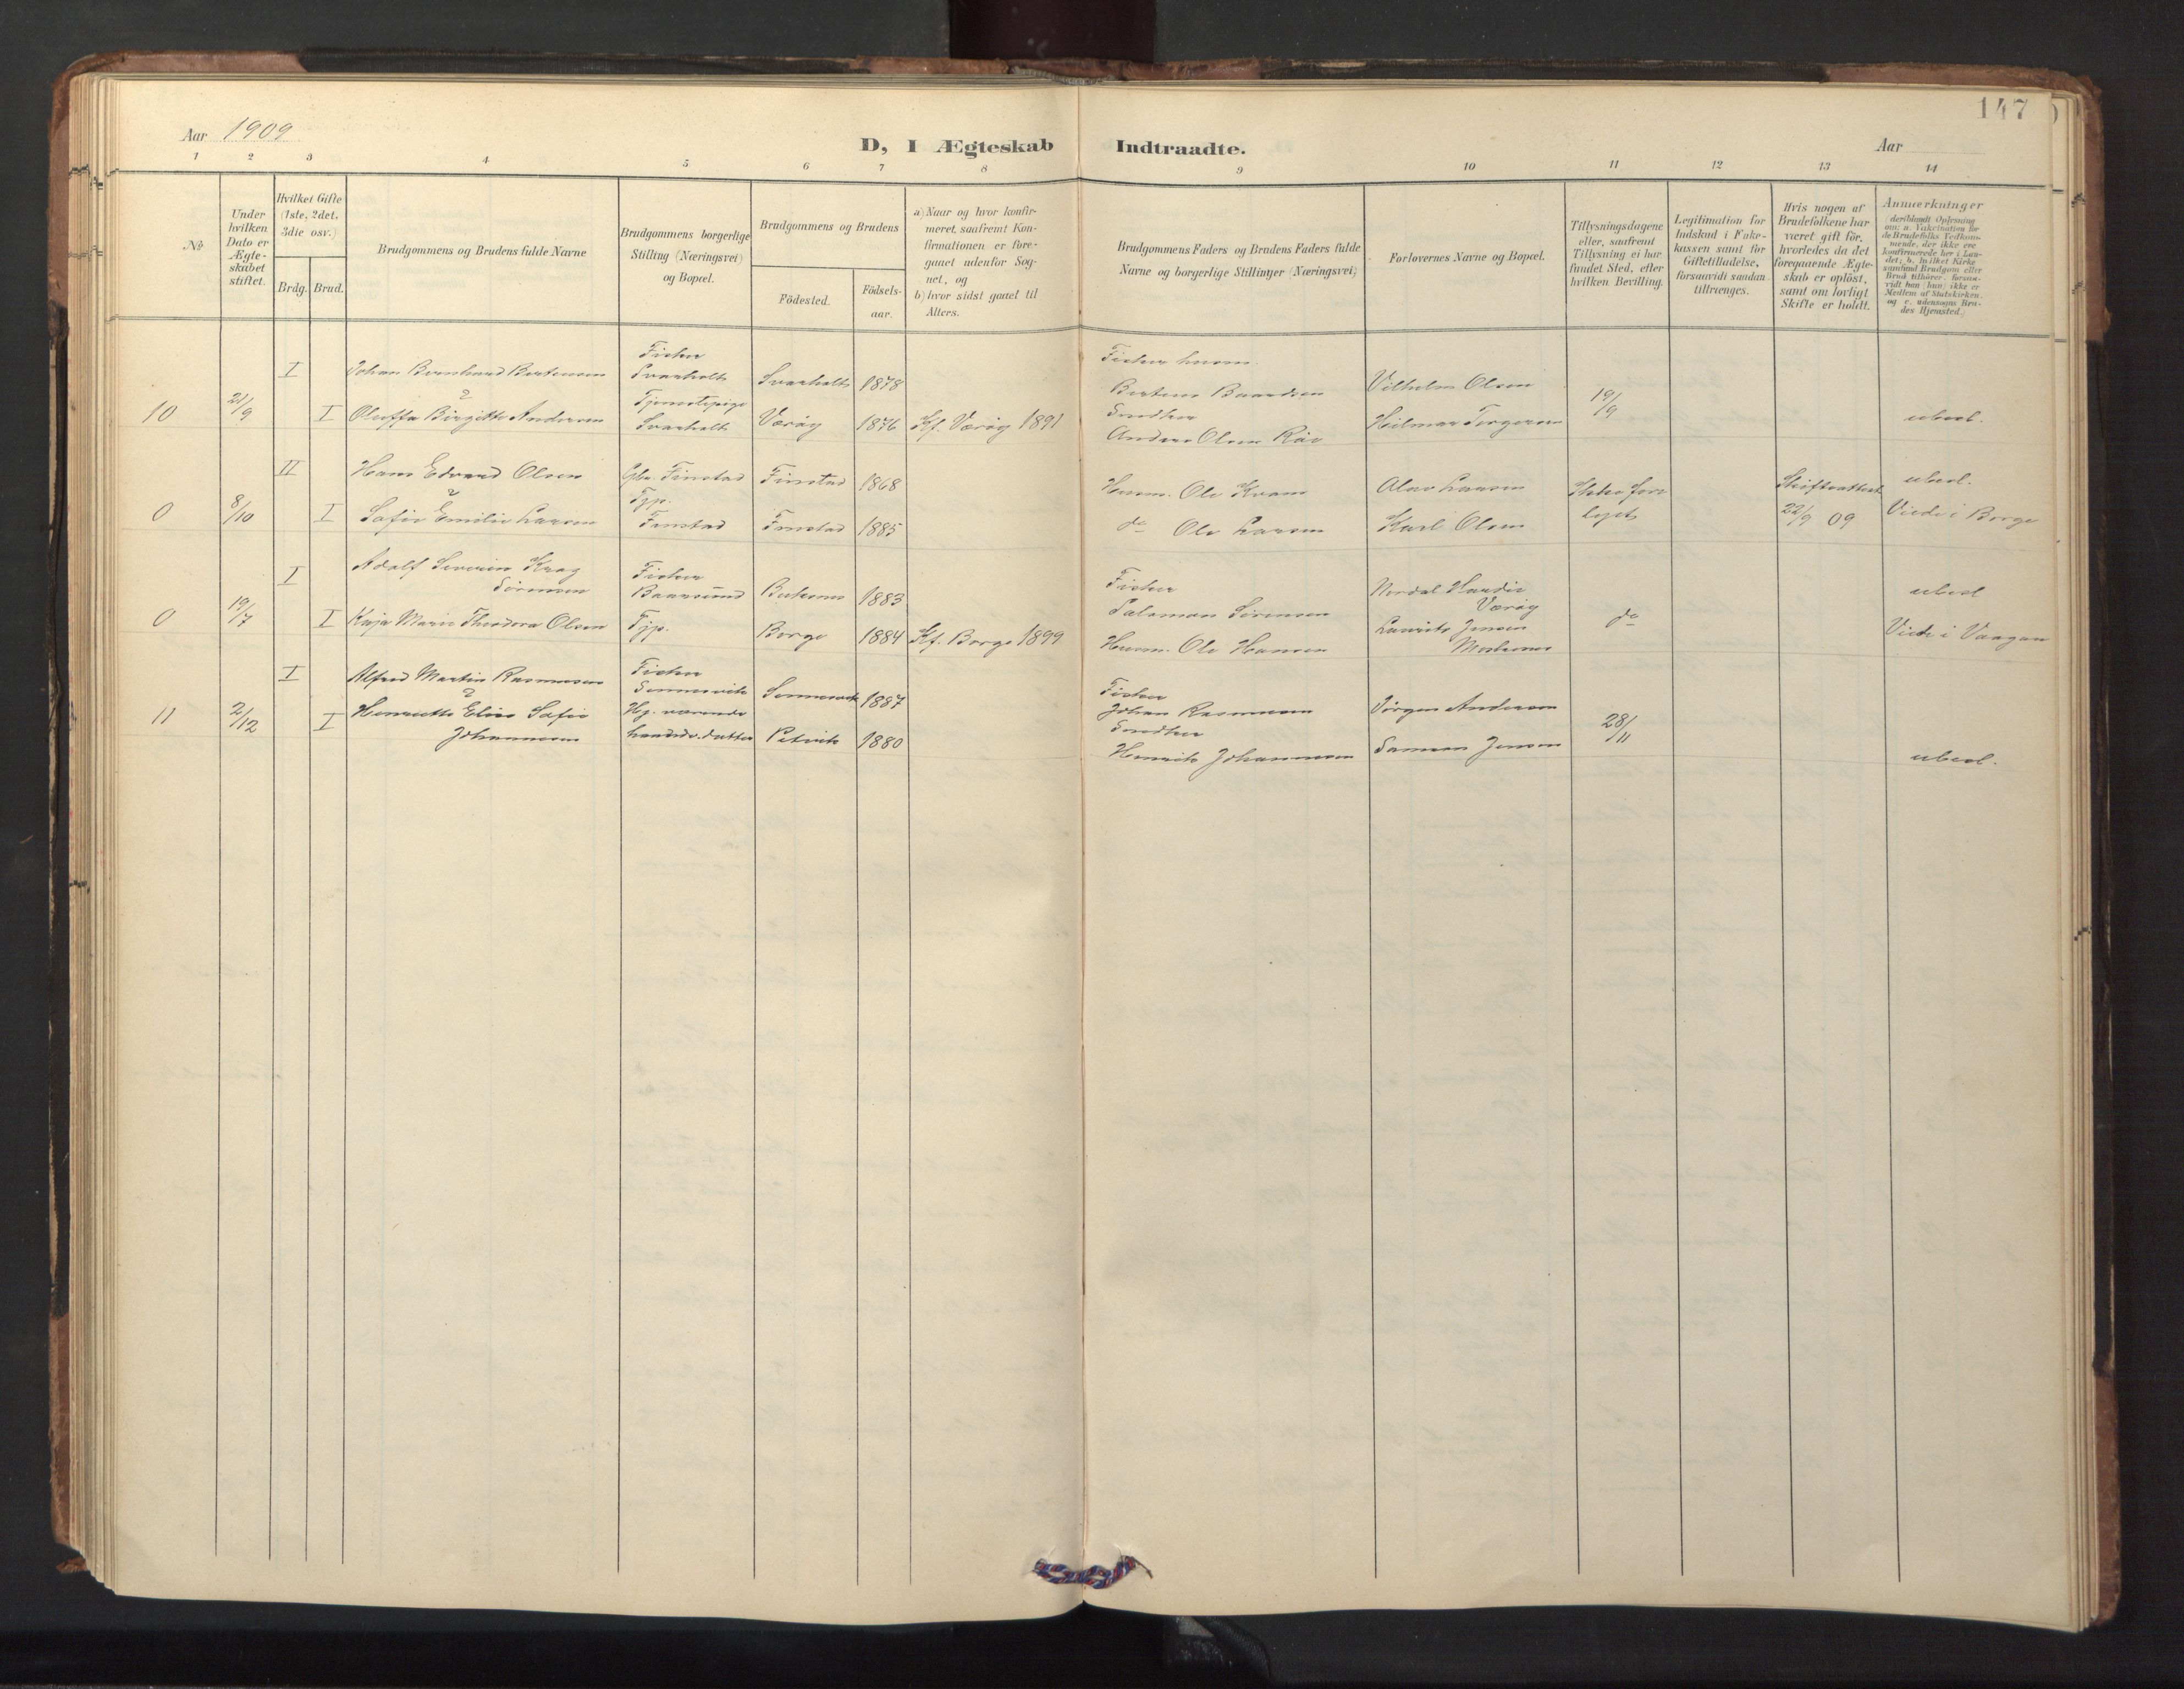 147
Aar 1909
D, I Ægteskab Indtraadte.
Aar
1 2 3 4 5 6 7 8 9 10 11 12 13 14
№
Under hvilken Dato er Ægteskabet stiftet.
Hvilket Gifte (1ste, 2det, 3die osv.)
Brdg. Brud.
Brudgommens og Brudens fulde Navne
Brudgommens borgerlige Stilling (Næringsvei) og Bopæl.
Brudgommens og Brudens
Födested.
Födselsaar.
a) Naar og hvor konfirmeret, saafremt Konfirmationen er foregaaet udenfor Sognet, og
b) hvor sidst gaaet til Alters.
Brudgommens Faders og Brudens Faders fulde Navne og borgerlige Stillinger (Næringsvei)
Forlovernes Navne og Bopæl.
Tillysningsdagene eller, saafremt Tillysning ei har fundet Sted, efter hvilken Bevilling.
Legitimation for Indskud i Fakekassen samt for Giftetilladelse, forsaavidt saadan tiltrænges.
Hvis nogen af Brudefolkene har været gift för, hvorledes da det foregaaende Ægteskab er oplöst, samt om lovligt Skifte er holdt.
Anmærkninger (deriblandt Oplysning om: a. Vakcination for de Brudefolks Vedkommende, der ikke ere konfirmerede her i Landet; b. hvilket Kirkesamfund Brudgom eller Brud tilhörer, forsaavidt han (hun) ikke er Medlem af Statskirken, og c. udensogns Brudes Hjemsted.)
10 21/9
I Johan Bernhard Bertensen
Fisker Svarholt
Svarholt 1878
&
I Oluffa Birgitte Andersen
Tjenestepige Svarholt
Værøy 1876 Kf. Værøy 1891
Fisker husm.
Bertens Baardsen
Snedker
Anders Olsen Røv
Vilhelm Olsen
Hilmar Torgersen
19/9
ubesl.
0 8/10
II Hans Edvard Olsen
Gbr. Finstad
Finstad 1868
&
I Sofie Emilie Larsen
Tjp. Finstad
Finstad 1885
Husm. Ole Kvam
do Ole Larsen
Olav Larsen
Karl Olsen
Ikke forelyst
Skifteattest
22/9 09
ubesl.
Viede i Borge
0 19/7
I Adolf Severin Krag
Sörensen
Fisker
Baarsund
1883
I Kaja Marie Theodora Olsen
Tjp.
Borge 1884 Kf. Borge 1899
Fisker
Salomon Sörensen
Husm. Ole Hansen
Værøy
Laurits Jensen
do
ubesl
Viede i Vaagan
11 2/12
I Alfred Martin Rasmussen
Fisker
Sennesvik
Sennesvik 1887
&
I Henriette Elise Sofie
Johannesen
Hj. værende
haandv. datter
Petvik 1880
Fisker
Johan Rasmussen
Snedker
Henrik Johannesen
Jörgen Andersen
Samson Jensen
28/11
ubesl.